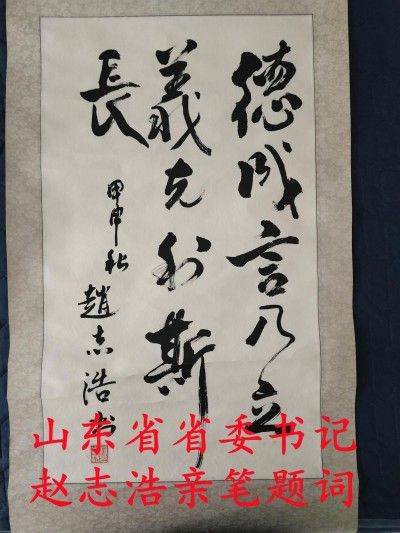 德成言乃立
義克利斯
長
甲申秋
趙志浩书
山东省省委书记
赵志浩亲笔题词